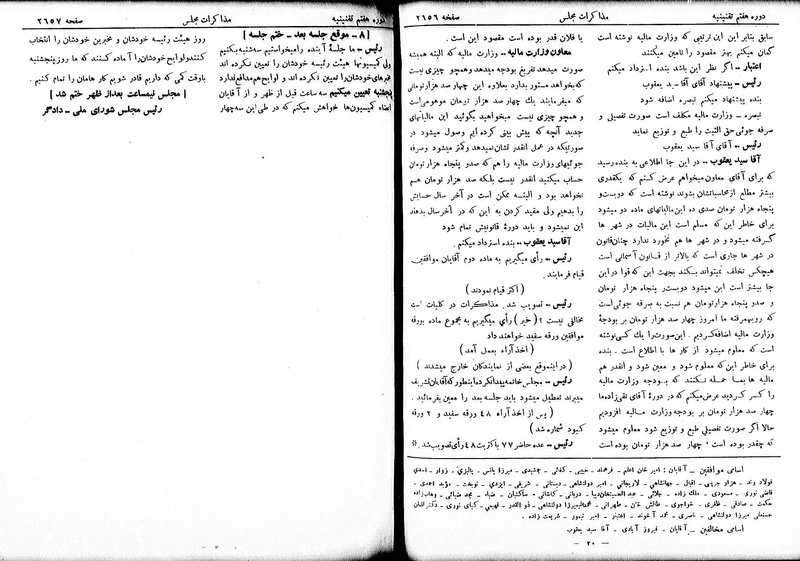 دوره هفتم تقنینیه
مذاکرات مجلس
صفحه ۲۶۵۶
سابق بنابر این این ترتیبی که وزارت مالیه نوشته است
گمان میکنم بهتر مقصود را تامین میکنند
اعتبار – اگر نظر این باشد بنده استرداد میکنم
رئیس – پیشنهاد آقای آقا سید یعقوب
بنده پیشنهاد میکنم تبصره اضافه شود
تبصره – وزارت مالیه مکلف است صورت تفصیلی و
صرفه جوئی حق الثبت را طبع و توزیع نماید
رئیس – آقای آقا سید یعقوب
آقا سید یعقوب – در این جا اطلاعی به بنده رسید
که برای آقای معاون میخواهم عرض کنم که یکقدری
بیشتر مطلع از محاسباتشان بشوند نوشته است که دویست و
پنجاه هزار تومان صدی ده این مالیاتهای ماده دو میشود
برای خاطر این که مسلم است این مالیات در شهر ها
گرفته میشود و در شهر ها هم نخورد ندارد چنان قانون
در شهر ها جاری است که بالاتر از قانون آسمانی است
هیچکس تخلف نمیتواند بکند بجهت این که قوا در این
جا بیشتر است این میشود دویست و پنجاه هزار تومان
و صد و پنجاه هزار تومان هم نسبت به صرفه جوئی است
که رویهمرفته ما امروز چهار صد هزار تومان بر بودجهٔ
وزارت مالیه اضافه کردیم . این صورت را یك کسی نوشته
است که معلوم میشود از کار ها با اطلاع است . بنده
برای خاطر این که معلوم شود و معین شود و انقدر هم
مالیه ها بما حمله نکنند که بودجه وزارت مالیه
را کسر کردید عرض میکنم که در دورهٔ آقای تقی زاده ما
چهار صد هزار تومان بر بودجه وزارت مالیه افزودیم
حالا اگر صورت تفصیلی طبع و توزیع شود معلوم میشود
که چقدر بوده است ، چهار صد هزار تومان بوده است
یا فلان قدر بوده است مقصود این است .
معاون وزارت مالیه – وزارت مالیه که البته همیشه
صورت میدهد تفریغ بودجه میدهد و همچو چیزی نیست
که بخواهد مستور بدارد بعلاوه این چهار صد هزار تومانی
که میفرمایند یك چهار صد هزار تومان موهومی است
و همچو چیزی نیست میخواهید بگوئید این مالیاتهای
جدید آنچه که پیش بینی کرده ایم وصول میشود در
صورتیکه در عمل انقدر نشان نمیدهد و کمتر میشود و صرفه
جوئیهای وزارت مالیه را هم که صد و پنجاه هزار تومان
حساب میکنید انقدر نیست بلکه صد هزار تومان هم
نخواهد بود و البته ممکن است در آخر سال حسابش
را بدهیم ولی مقید کردن به این که در آخر سال بدهند
این نمیشود و باید دورهٔ قانونیش تمام شود
آقا سید یعقوب – بنده استرداد میکنم .
رئیس – رأی میگیریم به ماده دوم آقایان موافقین
قیام فرمایند
( اکثر قیام نمودند )
رئیس – تصویب شد . مذاکرات در کلیات است
مخالفی نیست ؟ ( خیر ) رأی میگیریم به مجموع ماده بورقه
موافقین ورقه سفید خواهند داد
( اخذ آراء بعمل آمد )
( در این موقع بعضی از نمایندگان خارج میشدند )
رئیس – مجلس خاتمه پیدا نکرده اینطور که آقایان تشریف
میبرند تعطیل میشود باید جلسه بعد را معین بفرمائید .
( پس از اخذ آراء ۴۸ ورقه سفید و ۲ ورقه
کبود شماره شد )
رئیس – عده حاضر ۷۷ با اکثریت ۴۸ رأی تصویب شد . *
اسامی موافقین – آقایان :
اسامی مخالفین – آقایان – فیروز آبادی – آقا سید یعقوب
– ۲۰ –
دوره هفتم تقنینیه
مذاکرات مجلس
صفحه ۲۶۵۷
[ ۸ – موقع جلسه بعد – ختم جلسه ]
رئیس – ما جلسهٔ آینده را میخواستیم سه شنبه بکنیم
ولی کمیسیونها هیئت رئیسه خودشان را تعیین نکرده اند
مخبرهای خودشان را تعیین نکرده اند و لوایح هم مدافع ندارد
پنجشنبه تعیین میکنیم سه ساعت قبل از ظهر و از آقایان
اعضاء کمیسیون ها خواهش میکنم که در طی این سه چهار
روز هیئت رئیسه خودشان و مخبرین خودشان را انتخاب
کنند و لوایح خودشان را آماده کنند که ما روز پنجشنبه
با وقت کمی که داریم قادر شویم کار هامان را تمام کنیم .
[ مجلس نیمساعت بعد از ظهر ختم شد ]
رئیس مجلس شورای ملی – دادگر